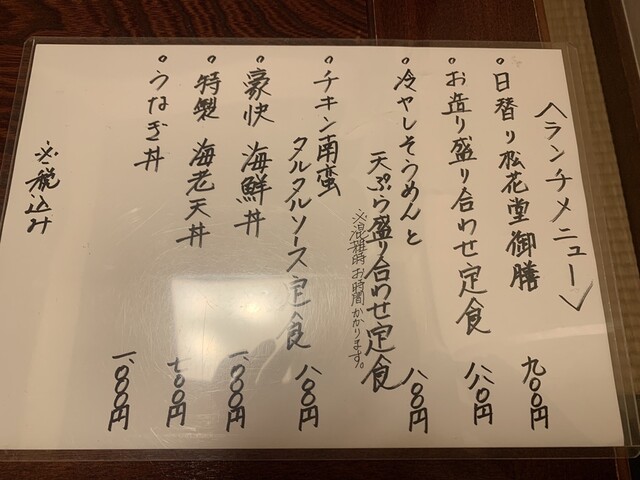 〈ランチメニュー〉
◦日替り松花堂御膳 九〇〇円
◦お造り盛り合わせ定食 八八〇円
◦冷やしそうめんと
天ぷら盛り合わせ定食 八〇〇円
※混雑時お時間かかります。
◦チキン南蛮
タルタルソース定食 八〇〇円
◦豪快 海鮮丼 一、〇〇〇円
◦特製 海老天丼 七〇〇円
◦うなぎ丼 一、〇〇〇円
※税込み